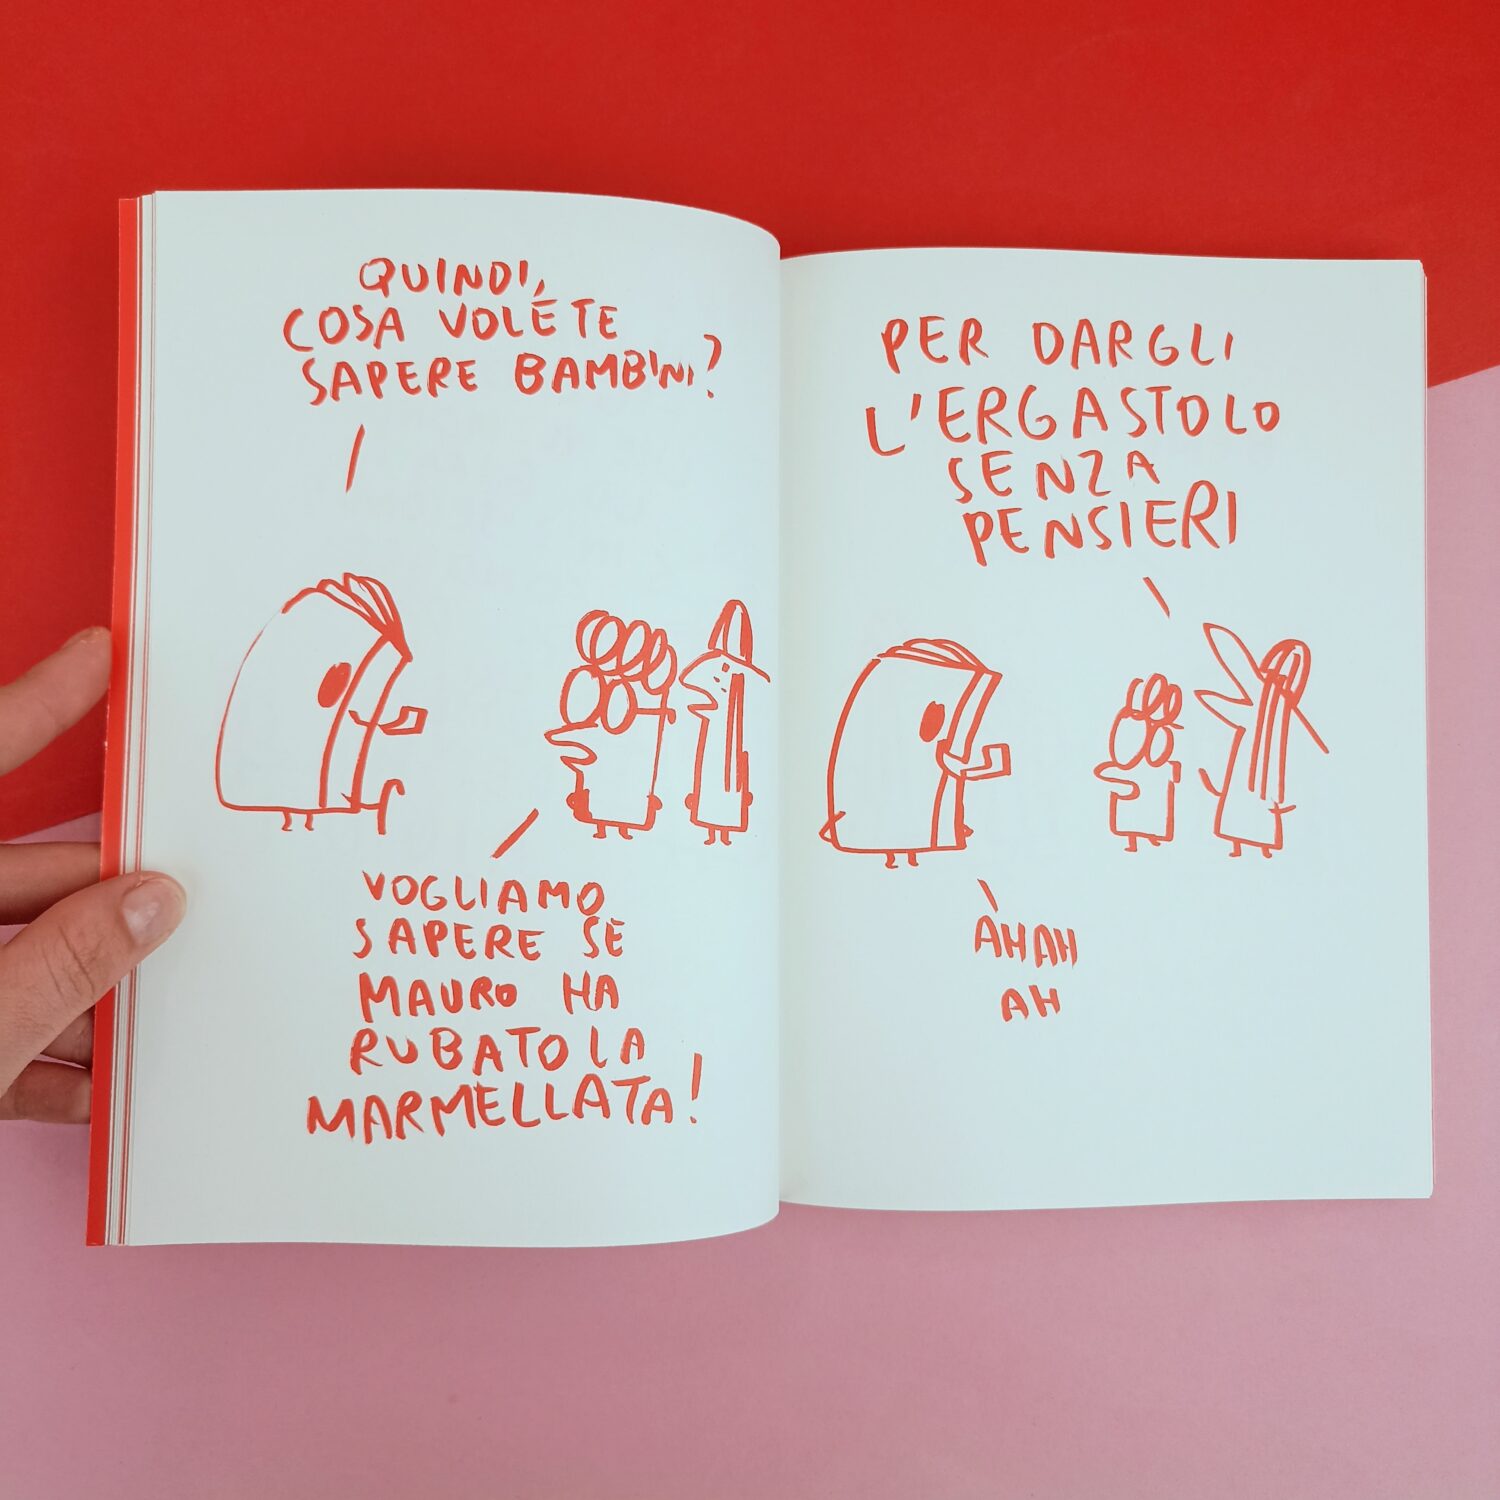 QUINDI,
COSA VOLÉTE
SAPERE BAMBINI?
VOGLIAMO
SAPERE SE
MAURO HA
RUBATO LA
MARMELLATA!
PER DARGLI
L'ERGASTOLO
SENZA
PENSIERI
ÀHAH
AH